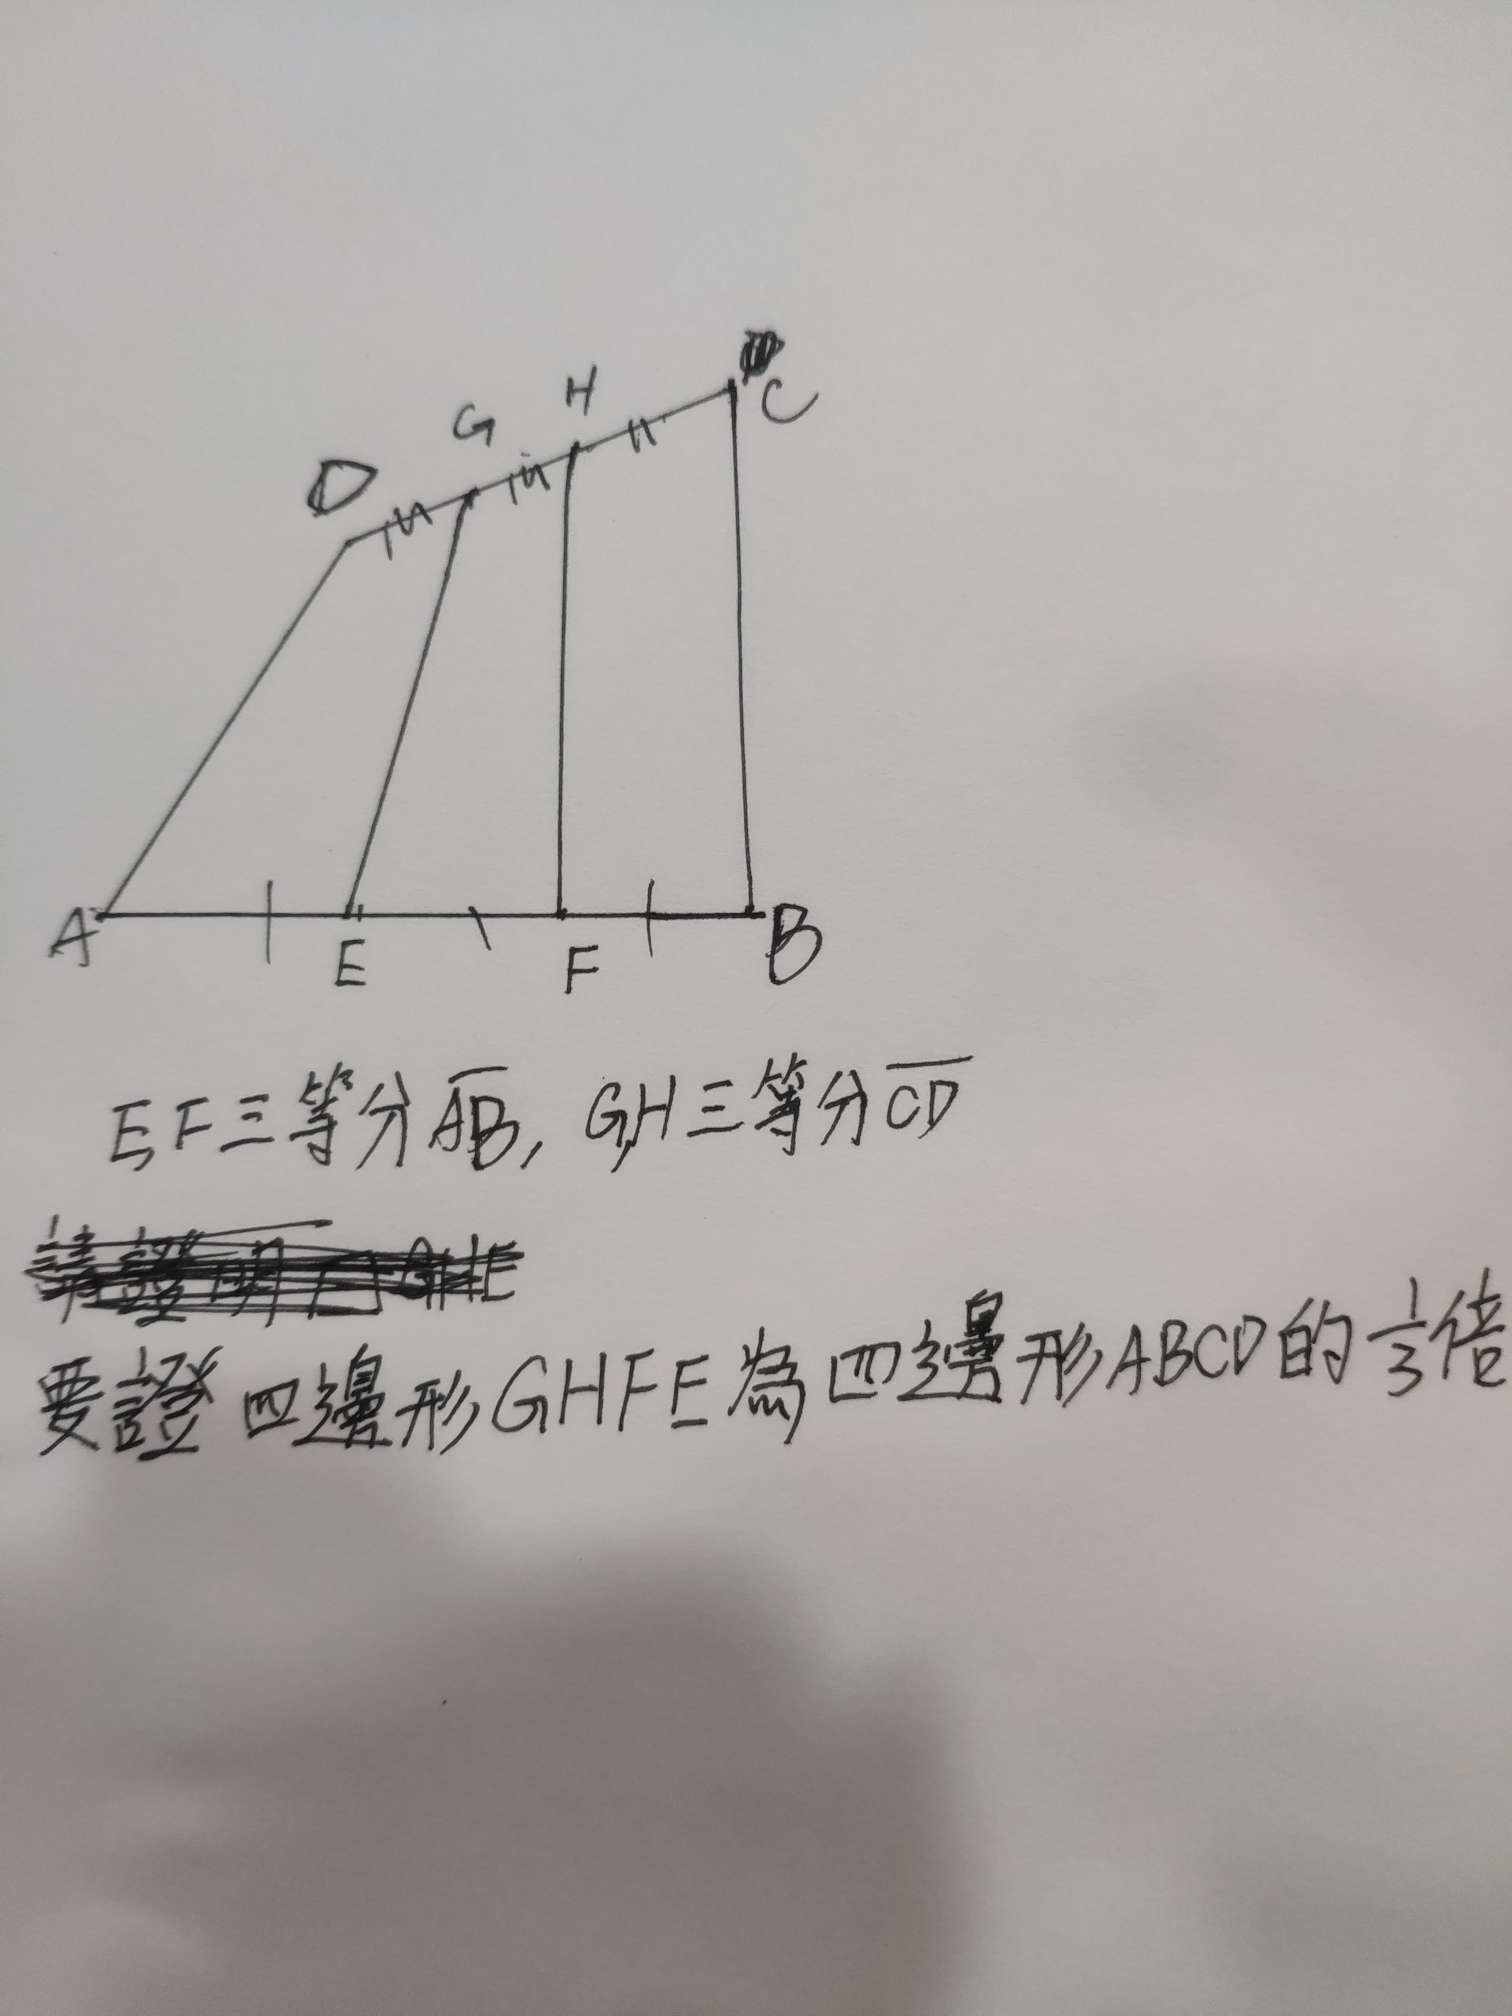 D G H C
A E F B
E,F三等分AB, G,H三等分CD
要證四邊形GHFE為四邊形ABCD的1/3倍